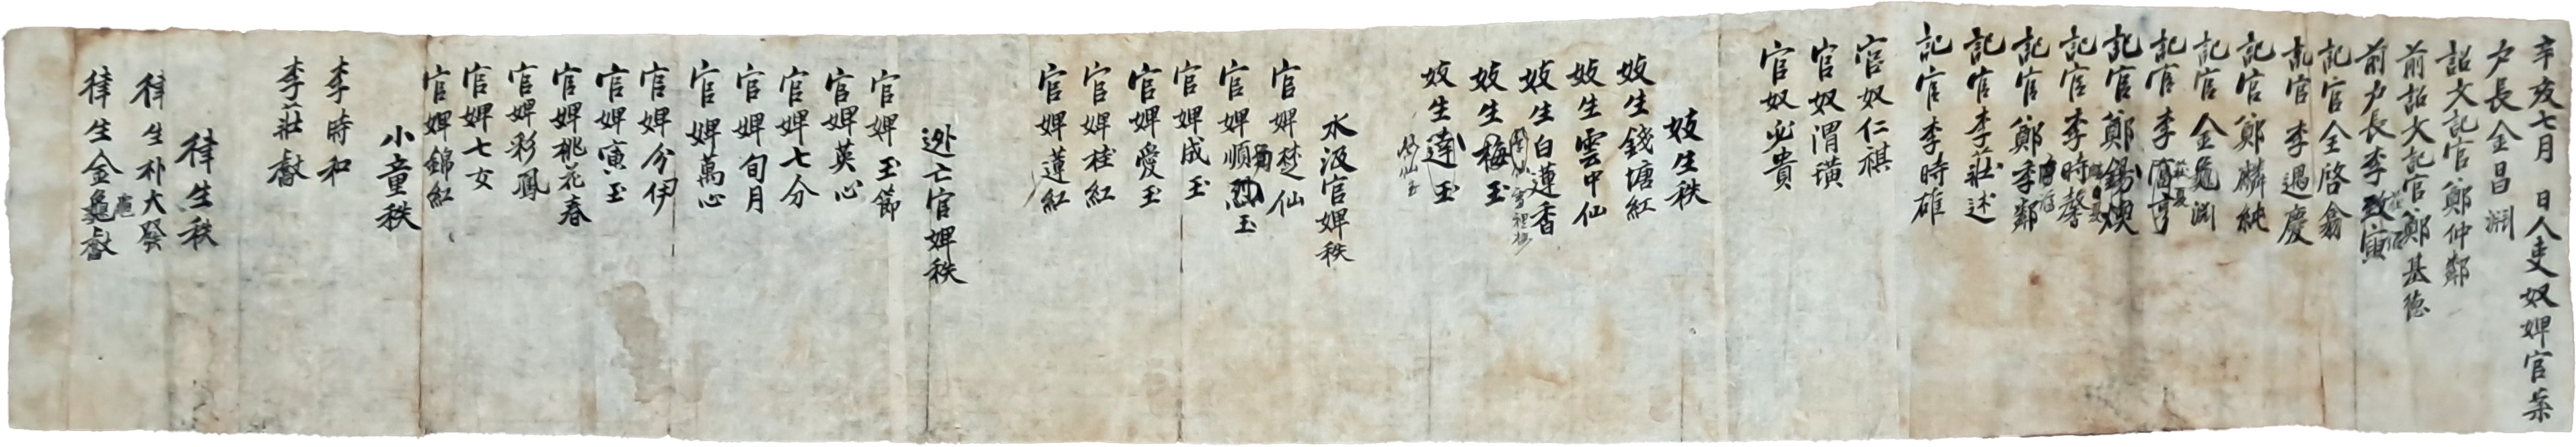 辛亥七月 日人吏奴婢官案
戶長金昌淵
詔文記官鄭仲鄰
前詔文記官鄭基德
前戶長李致寅
記官全啓翕
記官李遇慶
記官鄭麟純
記官金龜淵
記官李富亨
記官鄭錫煥
記官李時馨
記官鄭季鄰
記官李莊述
記官李時雄
官奴仁祺
官奴渭璜
官奴必貴
妓生秩
妓生錢塘紅
妓生雲中仙
妓生白蓮香
妓生梅玉
妓生蓮玉
水汲官婢秩
官婢楚仙
官婢順烈玉
官婢成玉
官婢愛玉
官婢桂紅
官婢蓮紅
逃亡官婢秩
官婢玉節
官婢英心
官婢七分
官婢旬月
官婢萬心
官婢分伊
官婢寅玉
官婢桃花春
官婢彩鳳
官婢七女
官婢錦紅
小童秩
李時和
李莊馨
律生秩
律生朴大發
律生金龜